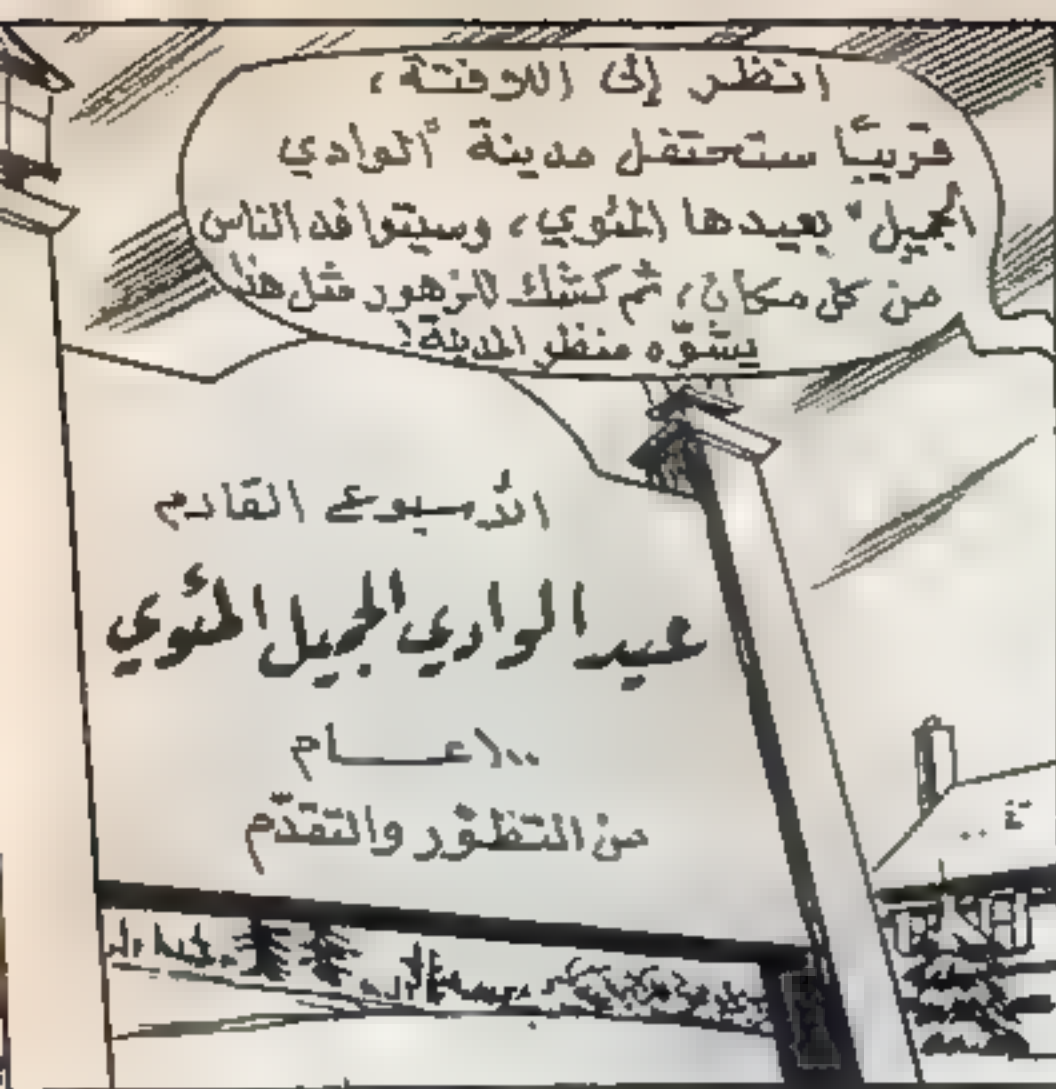 انظر إلى اللافتة،
قريبًا ستحتفل مدينة "الوادي
الجميل" بعيدها المئوي، وسيتوافد الناس
من كل مكان، ثم كشك للزهور مثل هذا
يشوّه منظر المدينة!
الأسبوع القادم
عيد الوادي الجميل المئوي
١٠٠ عـــام
من التطوّر والتقدّم